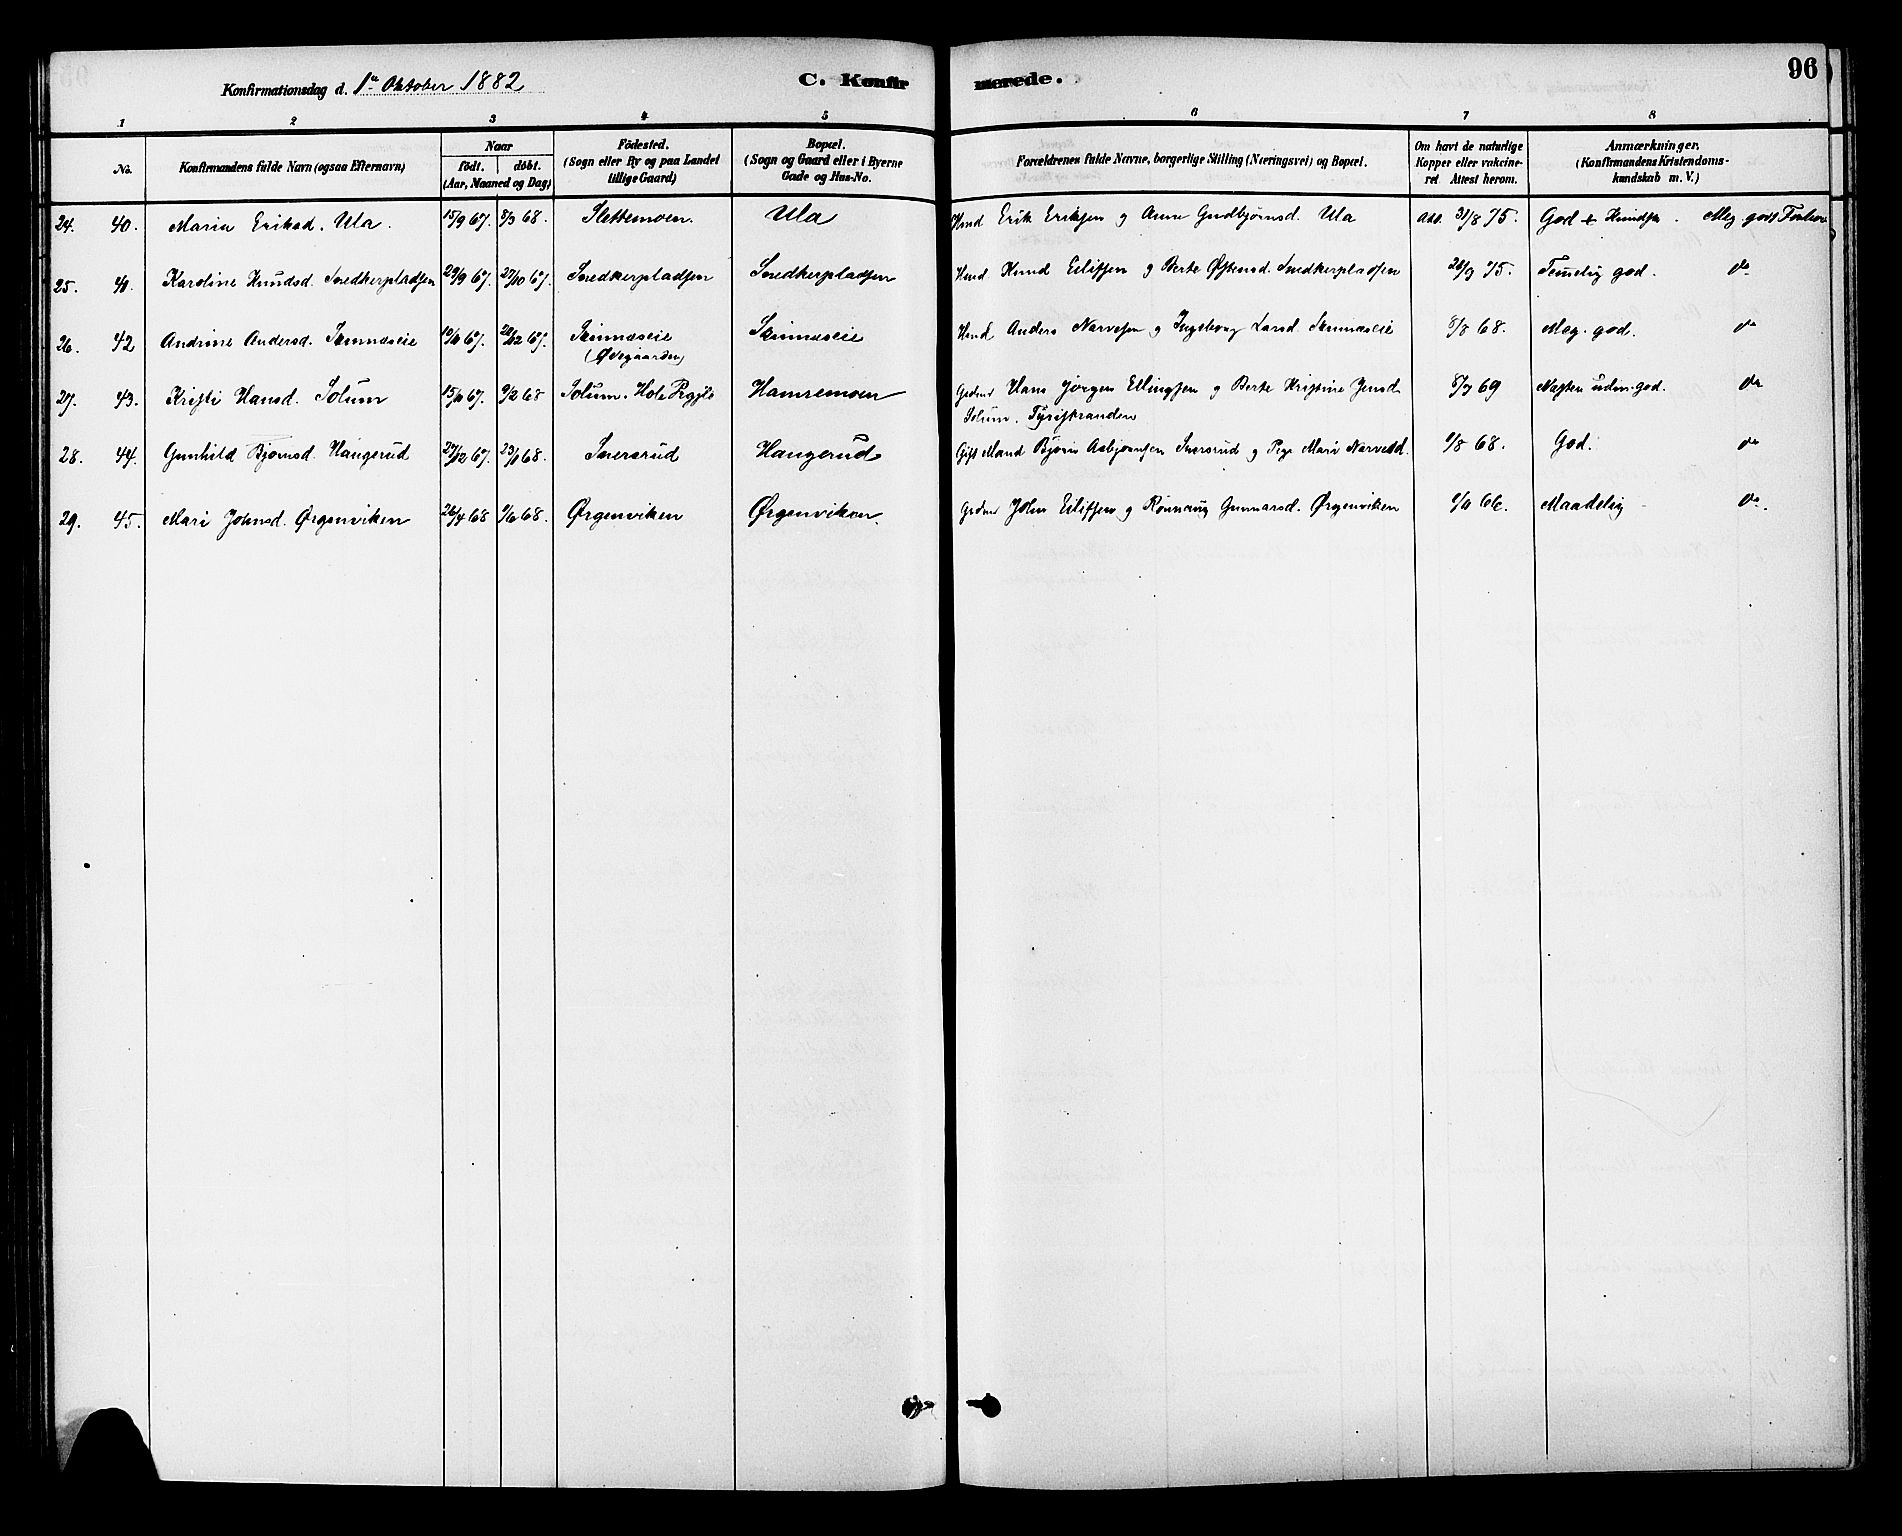 Konfirmationsdag d. 1ste Oktober 1882 C. Konfirmerede. 96
1 2 3 4 5 6 7 8
No. Konfirmandens fulde Navn (ogsaa Efternavn) Naar födt. döbt. (Aar, Maaned og Dag) Födested. (Sogn eller By og paa Landet tillige Gaard) Bopæl. (Sogn og Gaard eller i Byerne Gade og Hus-No. Forældrenes fulde Navne, borgerlige Stilling (Næringsvei) og Bopæl. Om havt de naturlige Kopper eller vakcineret Attest herom. Anmærkninger. (Konfirmandens Kristendomskundskab m. V.)
24. 40. Maria Eriksd. Ula. 15/9 67. 8/3 68. Slettemoen. Ula Hmd Erik Eriksen og Anne Gudbjørnsd. Ula 31/8 75. God Meg. godt Forhor
25. 41. Karoline Knudsd. Snedkerpladsen 29/9 67. 27/10 67. Snedkerpladsen Snedkerpladsen Hmd Knud Eilifsen og Berte Østensd. Snedkerpladsen 26/9 75. Temelig god. do
26. 42 Andrine Andersd. Skinnæseie 67. 67. Skinnæseie (Ødegaarden) Skinnæseie Hmd Anders Narvesen og Ingeborg Larsd. Skinnæseie 8/8 68. Meg. god. do
27. 43. Kristi Hansd. Solum 15/10 67. 9/2 68 Solum. Hole Prgjld Hamremoen Grdmr Hans Jørgen Ellingsen og Berte Kristine Jensd. Solum. Tyristranden 69 Næsten udm. god. do
28. 44. Gunhild Bjørnsd. Haugerud 27/12 67. 23/1 68. Snersrud Haugerud Gift Mand Bjørn Asbjørnsen Snersrud og Pige Mari Narvesd. 9/8 68. God. do
29. 45. Mari Johnsd. Ørgenviken 26/4 68 9/6 68. Ørgenviken Ørgenviken. Grdmr John Eilifsen og Rønnaug Gunnarsd. Ørgenviken Maadelig do.